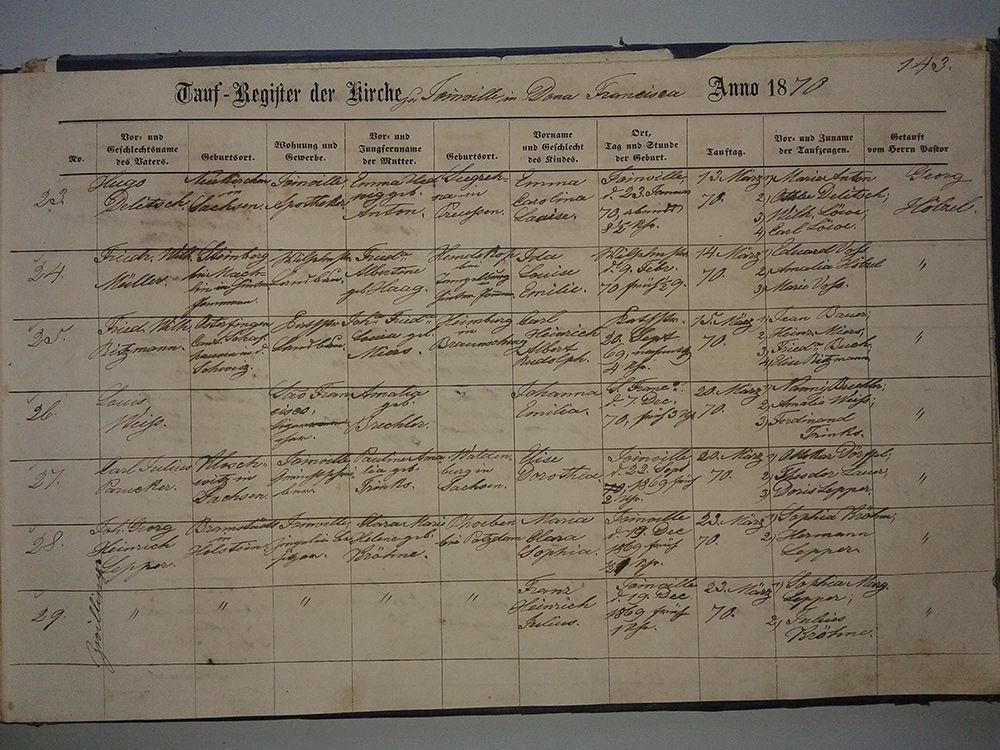 143.
Tauf-Register der Kirche zu Joinville in Dona Francisca Anno 1870
No.
Vor- und
Geschlechtsname
des Vaters.
Geburtsort.
Wohnung und
Gewerbe.
Vor- und
Jungfernname
der Mutter.
Geburtsort.
Vorname
und Geschlecht
des Kindes.
Ort,
Tag und Stunde
der Geburt.
Tauftag.
Vor- und Zuname
der Taufzeugen.
Getauft
vom Herrn Pastor
23.
Hugo
Delitsch.
Neukirchen
in
Sachsen.
Joinville,
Apotheker.
Emma
geb.
Anton.
in
Preussen.
Emma
Carolina
Louise.
Joinville
d. 23. Januar
70, abends
8½ Uhr.
13. März
70.
1, Marie Anton
2, Ottilie Delitsch,
3, Wilh. Löwe,
4, Carl Löwe.
Georg
Hölzel.
24.
Friedr. Wilh.
Müller.
Wilhelmstr.
Landbau.
Albertine
geb. Haag.
Ida
Louise
Emilie.
Wilhelmstr.
d. 9. Febr.
70 früh ½9
14. März
70.
1, Eduard Voss
2, Amalia Hölzel
3, Marie Voss.
"
25.
Fried. Wilh.
Ritzmann.
Osterfingen
Cant. Schaf-
hausen in d.
Schweiz.
Landbau.
Louise geb.
Miers.
Heimburg
in
Braunschweig
Carl
Heinrich
Albert
Rudolph.
20. Sept
69, nachmittg
4 Uhr.
15. März
70.
1, Jean Bauer;
2, Heinr. Miers,
4, Elise Ritzmann
"
26.
Louis
Weiss.
Sao Fran-
cisco,
Amalia
geb.
Brechler.
Johanna
Emilia.
S. Franco.
d. 7 Dec.
70, früh 3 Uhr
20. März
70.
1, Nanny Brechler,
2, Amalie Weiss;
3, Ferdinand
Trinks.
"
27.
Carl Julius
Parucker.
in
Sachsen.
Joinville
Pauline Ama-
lia geb.
Trinks.
Walden-
burg in
Sachsen.
Elise
Dorothea.
Joinville
d. 22. Sept
1869 früh
2 Uhr.
20. März
70.
2, Theodor Lauer,
3, Doris Lepper.
"
28.
Joh. Georg
Heinrich
Lepper.
Bramstedt
in
Holstein.
Joinville,
Clara Marie
Helene geb.
Kröhne.
Phoeben
bei Potzdam
Maria
Clara
Sophia.
Joinville
d. 19. Dec
1869 früh
½1 Uhr.
23. März
70.
1, Sophia Kröhne,
2, Hermann
Lepper.
"
29.
Zwillinge
"
"
"
"
"
Franz
Heinrich
Julius.
Joinville
d. 19. Dec.
1869 früh
1 Uhr.
23. März
70.
1, Sophia Marg.
Lepper,
2, Julius
Kröhne.
"